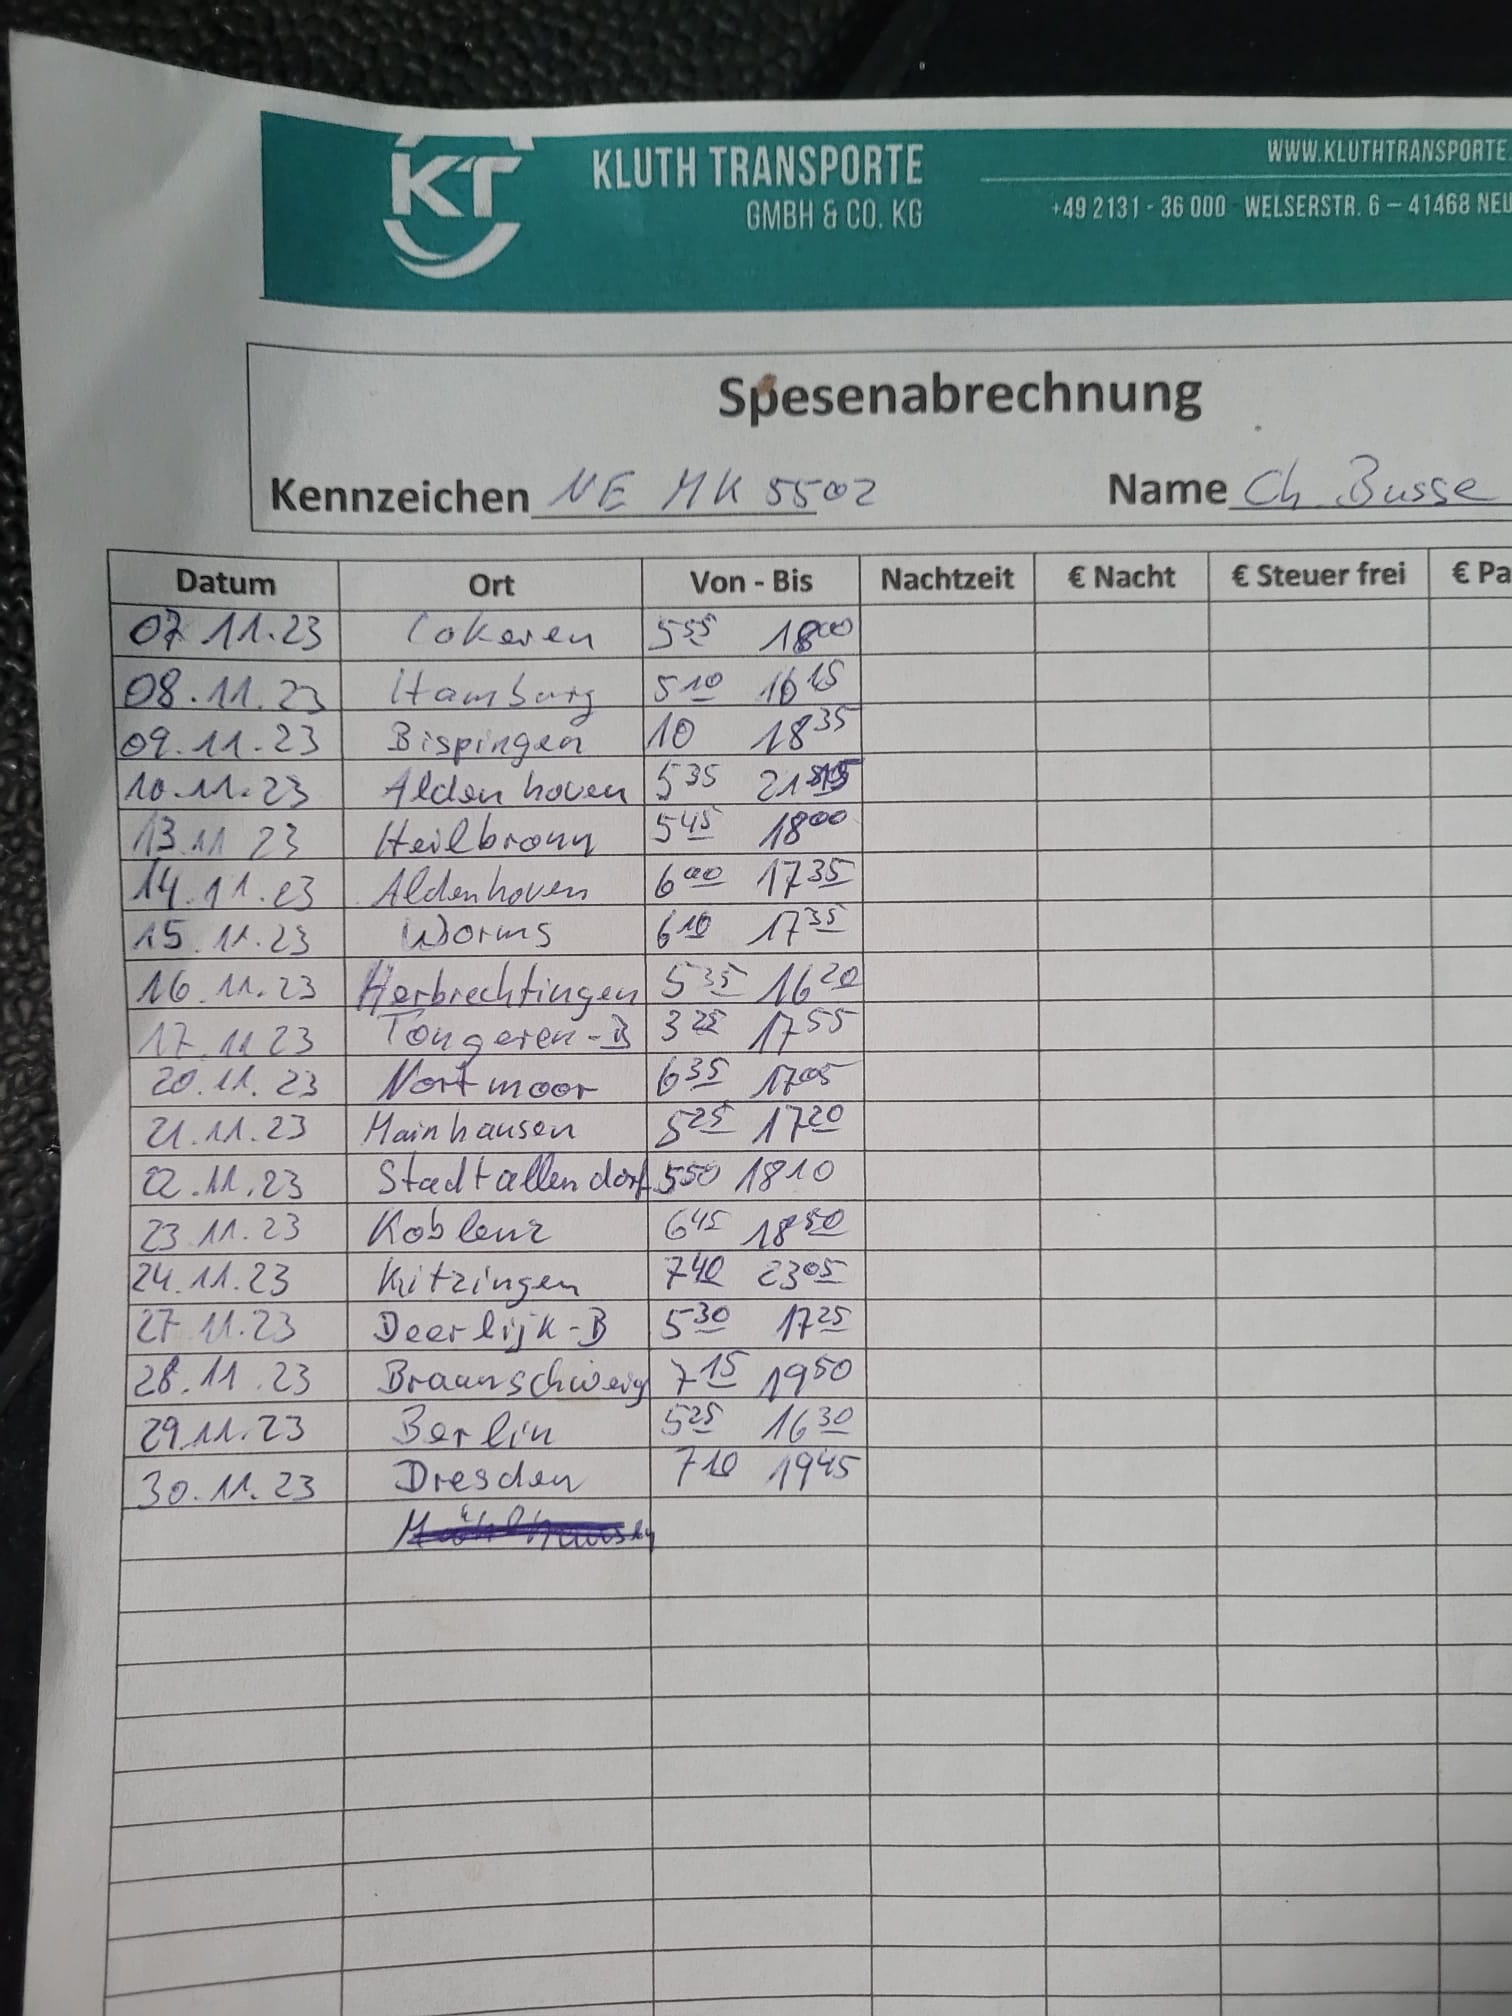 KT
KLUTH TRANSPORTE
GMBH & CO. KG
WWW.KLUTHTRANSPORTE.
+49 2131 - 36 000 WELSERSTR. 6 – 41468 NEU
Spesenabrechnung
Kennzeichen NE MK 5502 Name Ch. Busse
Datum Ort Von - Bis Nachtzeit € Nacht € Steuer frei € Pa
07.11.23 Lokeren 5 55 18 00
08.11.23 Hamburg 5 10 16 15
09.11.23 Bispingen 10 18 35
10.11.23 Aldenhoven 5 35 21
13.11 23 Heilbronn 5 45 18 00
14.11.23 Aldenhoven 6 00 17 35
15.11.23 Worms 6 10 17 35
16.11.23 Herbrechtingen 5 35 16 20
17.11 23 Tongeren-B 3 25 17 55
20.11.23 Nortmoor 6 35 17 05
21.11.23 Mainhausen 5 25 17 20
22.11.23 Stadtallendorf 5 50 18 10
23 11.23 Koblenz 6 45 18 50
24.11.23 Kitzingen 7 40 23 05
27 11.23 Deerlijk-B 5 30 17 25
28.11.23 Braunschweig 7 15 19 50
29.11.23 Berlin 5 25 16 30
30.11.23 Dresden 7 10 19 45